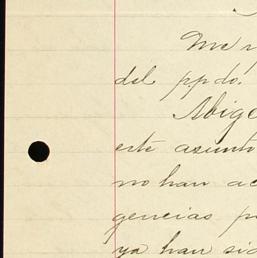 Me
del ppdo.
Abige
este asunto
no han ac
gencias p
ya han sid